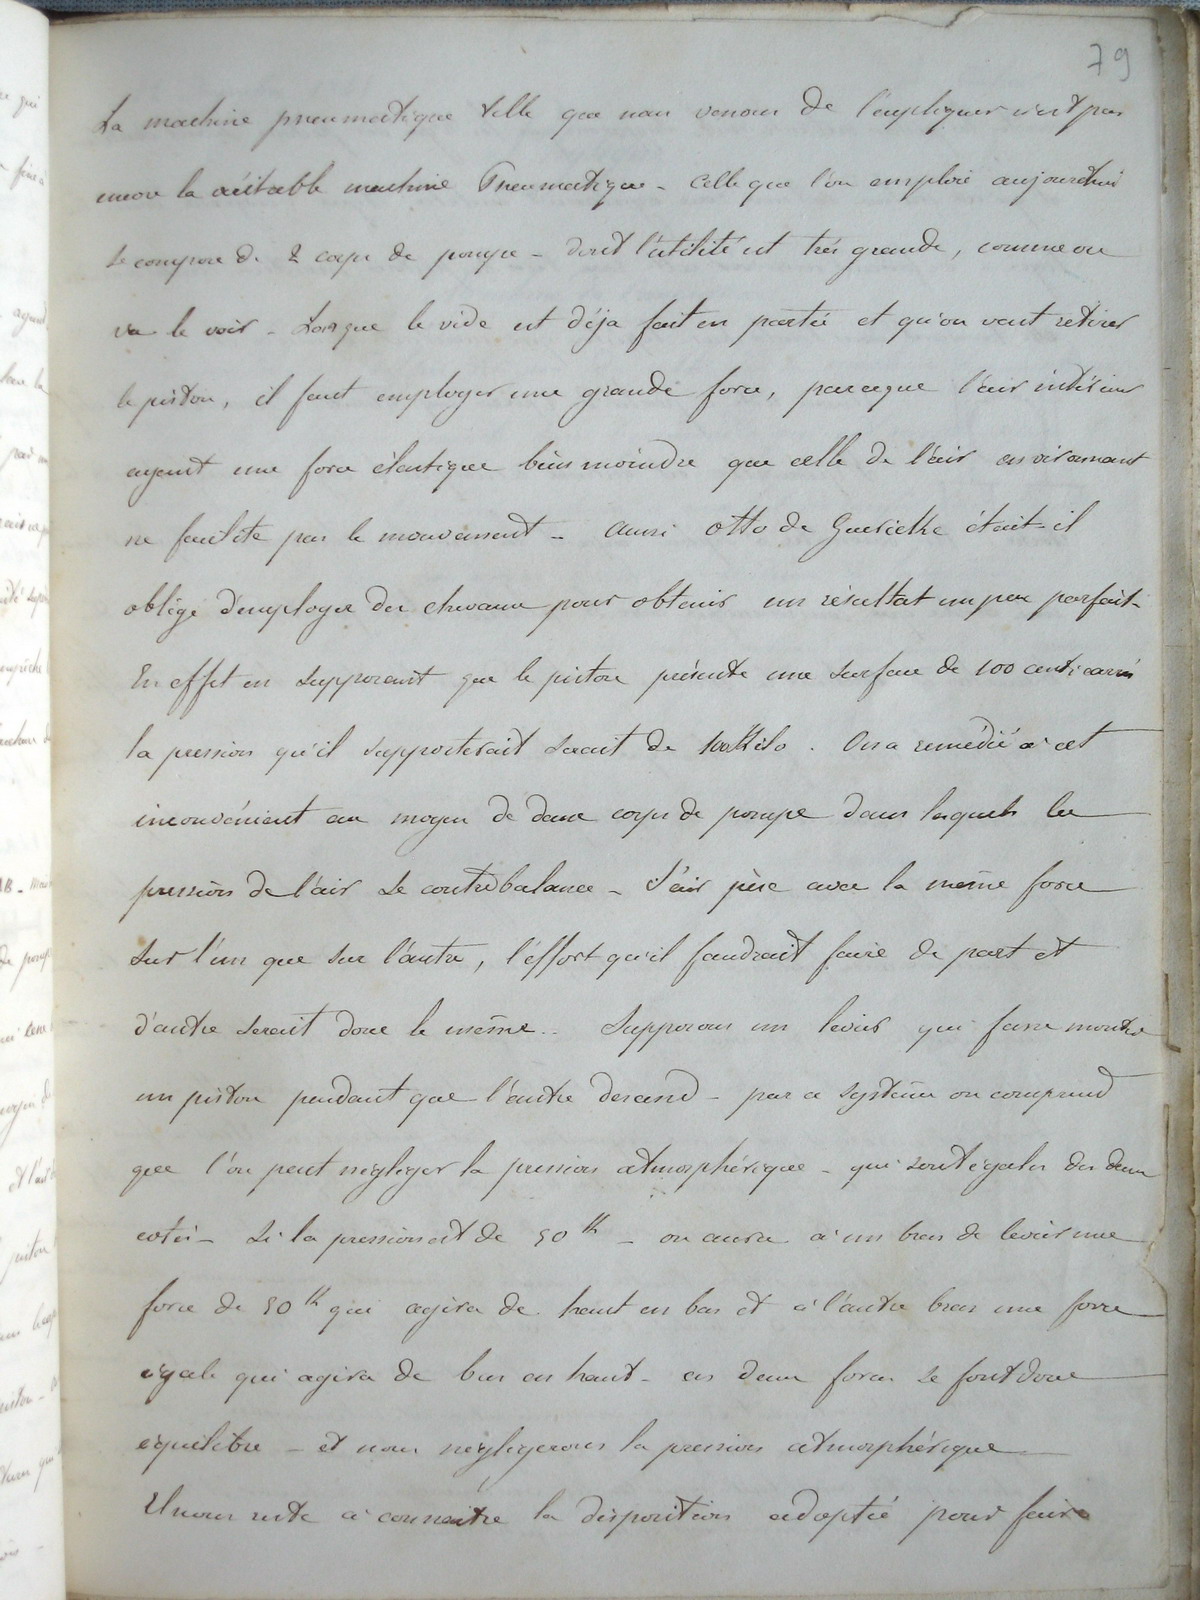 79
La machine pneumatique telle que nous venons de l'expliquer n'est pas
encore la véritable machine Pneumatique - Celle que l'on emploie aujourd'hui
se compose de 2 corps de pompe - dont l'utilité est très grande, comme on
va le voir - Lorsque le vide est déja fait en partie et qu'on veut retirer
le piston, il faut employer une grande force, parceque l'air intérieur
ayant une force élastique bien moindre que celle de l'air environnant
ne facilite pas le mouvement - Aussi Otto de Guericke était-il
obligé d'employer des chevaux pour obtenir un résultat un peu parfait -
En effet en supposant que le piston présente une surface de 100 centi carrés
la pression qu'il supporterait serait de 100 Kilo. On a remédié à cet
inconvénient au moyen de deux corps de pompe dans lesquels les
pressions de l'air se contrebalance - L'air pèse avec la même force
sur l'un que sur l'autre, l'effort qu'il faudrait faire de part et
d'autre serait donc le même - Supposons un levier qui fasse monter
un piston pendant que l'autre descend - par ce système on comprend
que l'on peut négliger la pression atmosphérique - qui sont égales des deux
cotés - Si la pression est de 50 k - on aura à un bras de levier une
force de 50 k qui agira de haut en bas et à l'autre bras une force
égale qui agira de bas en haut - ces deux forces se font donc
équilibre - et nous négligerons la pression atmosphérique
Il nous reste à connaitre la disposition adoptée pour faire